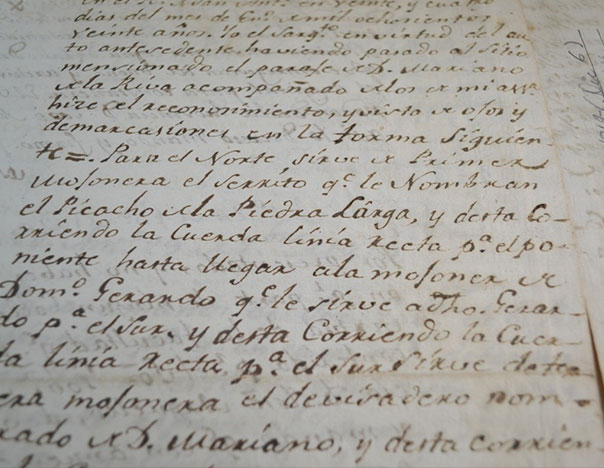 en veinte, y cuatro
dias del mes de En.º Mil ochosientos
veinte años. Yo el Sarg.to en virtud del au
to antesedente haviendo pasado al Sitio
mensionado el paraje de D. Mariano
de la Riva acompañado de los de mi assª
hize el reconosimiento, y vista de ojos y
demarcasiones en la forma siguien
te=. Para el Norte sirve de Primera
mojonera el serrito q.e le Nombran
el Picacho de la Piedra Lárga, y desta Co-
rriendo la Cuerda linia recta p.a el po-
niente hasta llegar a la mojoner de
Dom.º Gerardo q.e le sirve a dho. Gerar-
do p.a el Sur. y desta Corriendo la Cuer-
da linia recta p.a el sur sirve de ter
era mojonera el devisadero nom=
rado de D. Mariano, y desta corrien